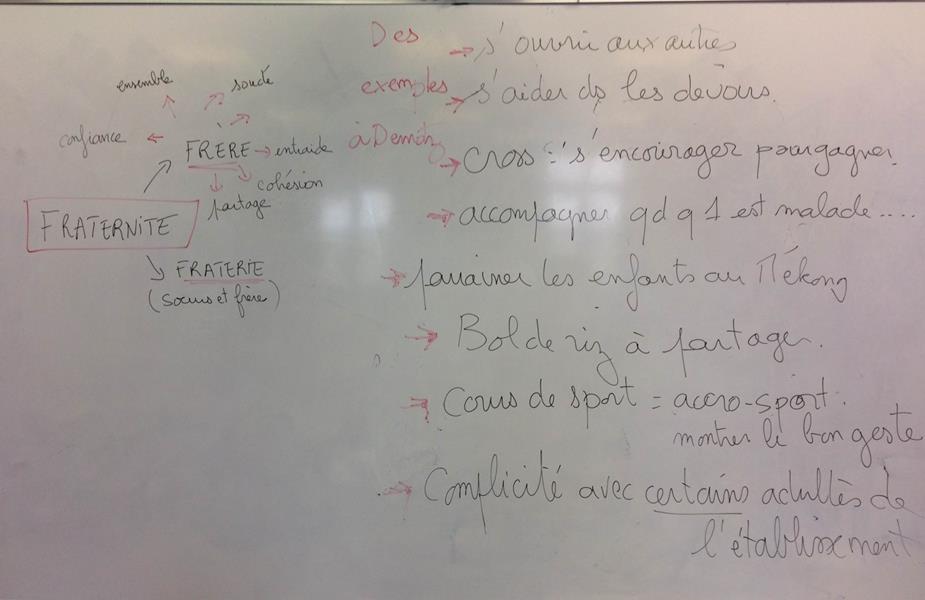 ensemble
soudé
confiance
FRERE → entraide
cohésion
partage
FRATERNITE
FRATERIE
(Sœurs et frère)
Des
exemples
à
→ s'ouvrir aux autres
→ s'aider ds les devoirs.
→ Cross : s'encourager pour gagner.
→ accompagner qd q1 est malade....
→ parrainer les enfants au Mékong
→ Bol de riz à partager.
→ Cours de sport = accro-sport.
montrer le bon geste
→ Complicité avec certains adultes de
l'établissement